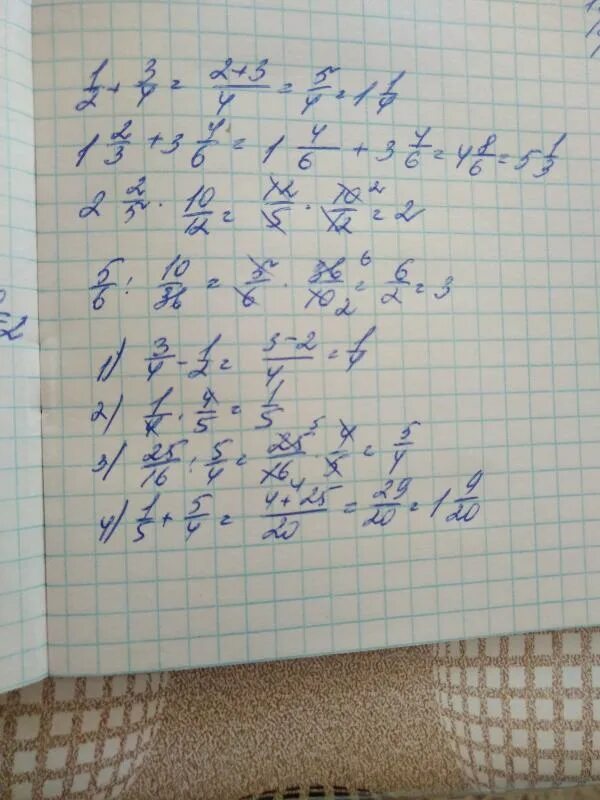 1/2 + 3/4 = (2+3)/4 = 5/4 = 1 1/4
1 2/3 + 3 4/6 = 1 4/6 + 3 4/6 = 4 8/6 = 5 1/3
2 2/5 · 10/12 = 12/5 · 10/12 2 = 2
5/6 : 10/36 = 5/6 · 36/10 6 2 = 6/2 = 3
1) 3/4 - 1/2 = (3-2)/4 = 1/4
2) 1/4 · 4/5 = 1/5
3) 25/16 : 5/4 = 25/16 5 4 · 4/5 = 5/4
4) 1/5 + 5/4 = (4+25)/20 = 29/20 = 1 9/20